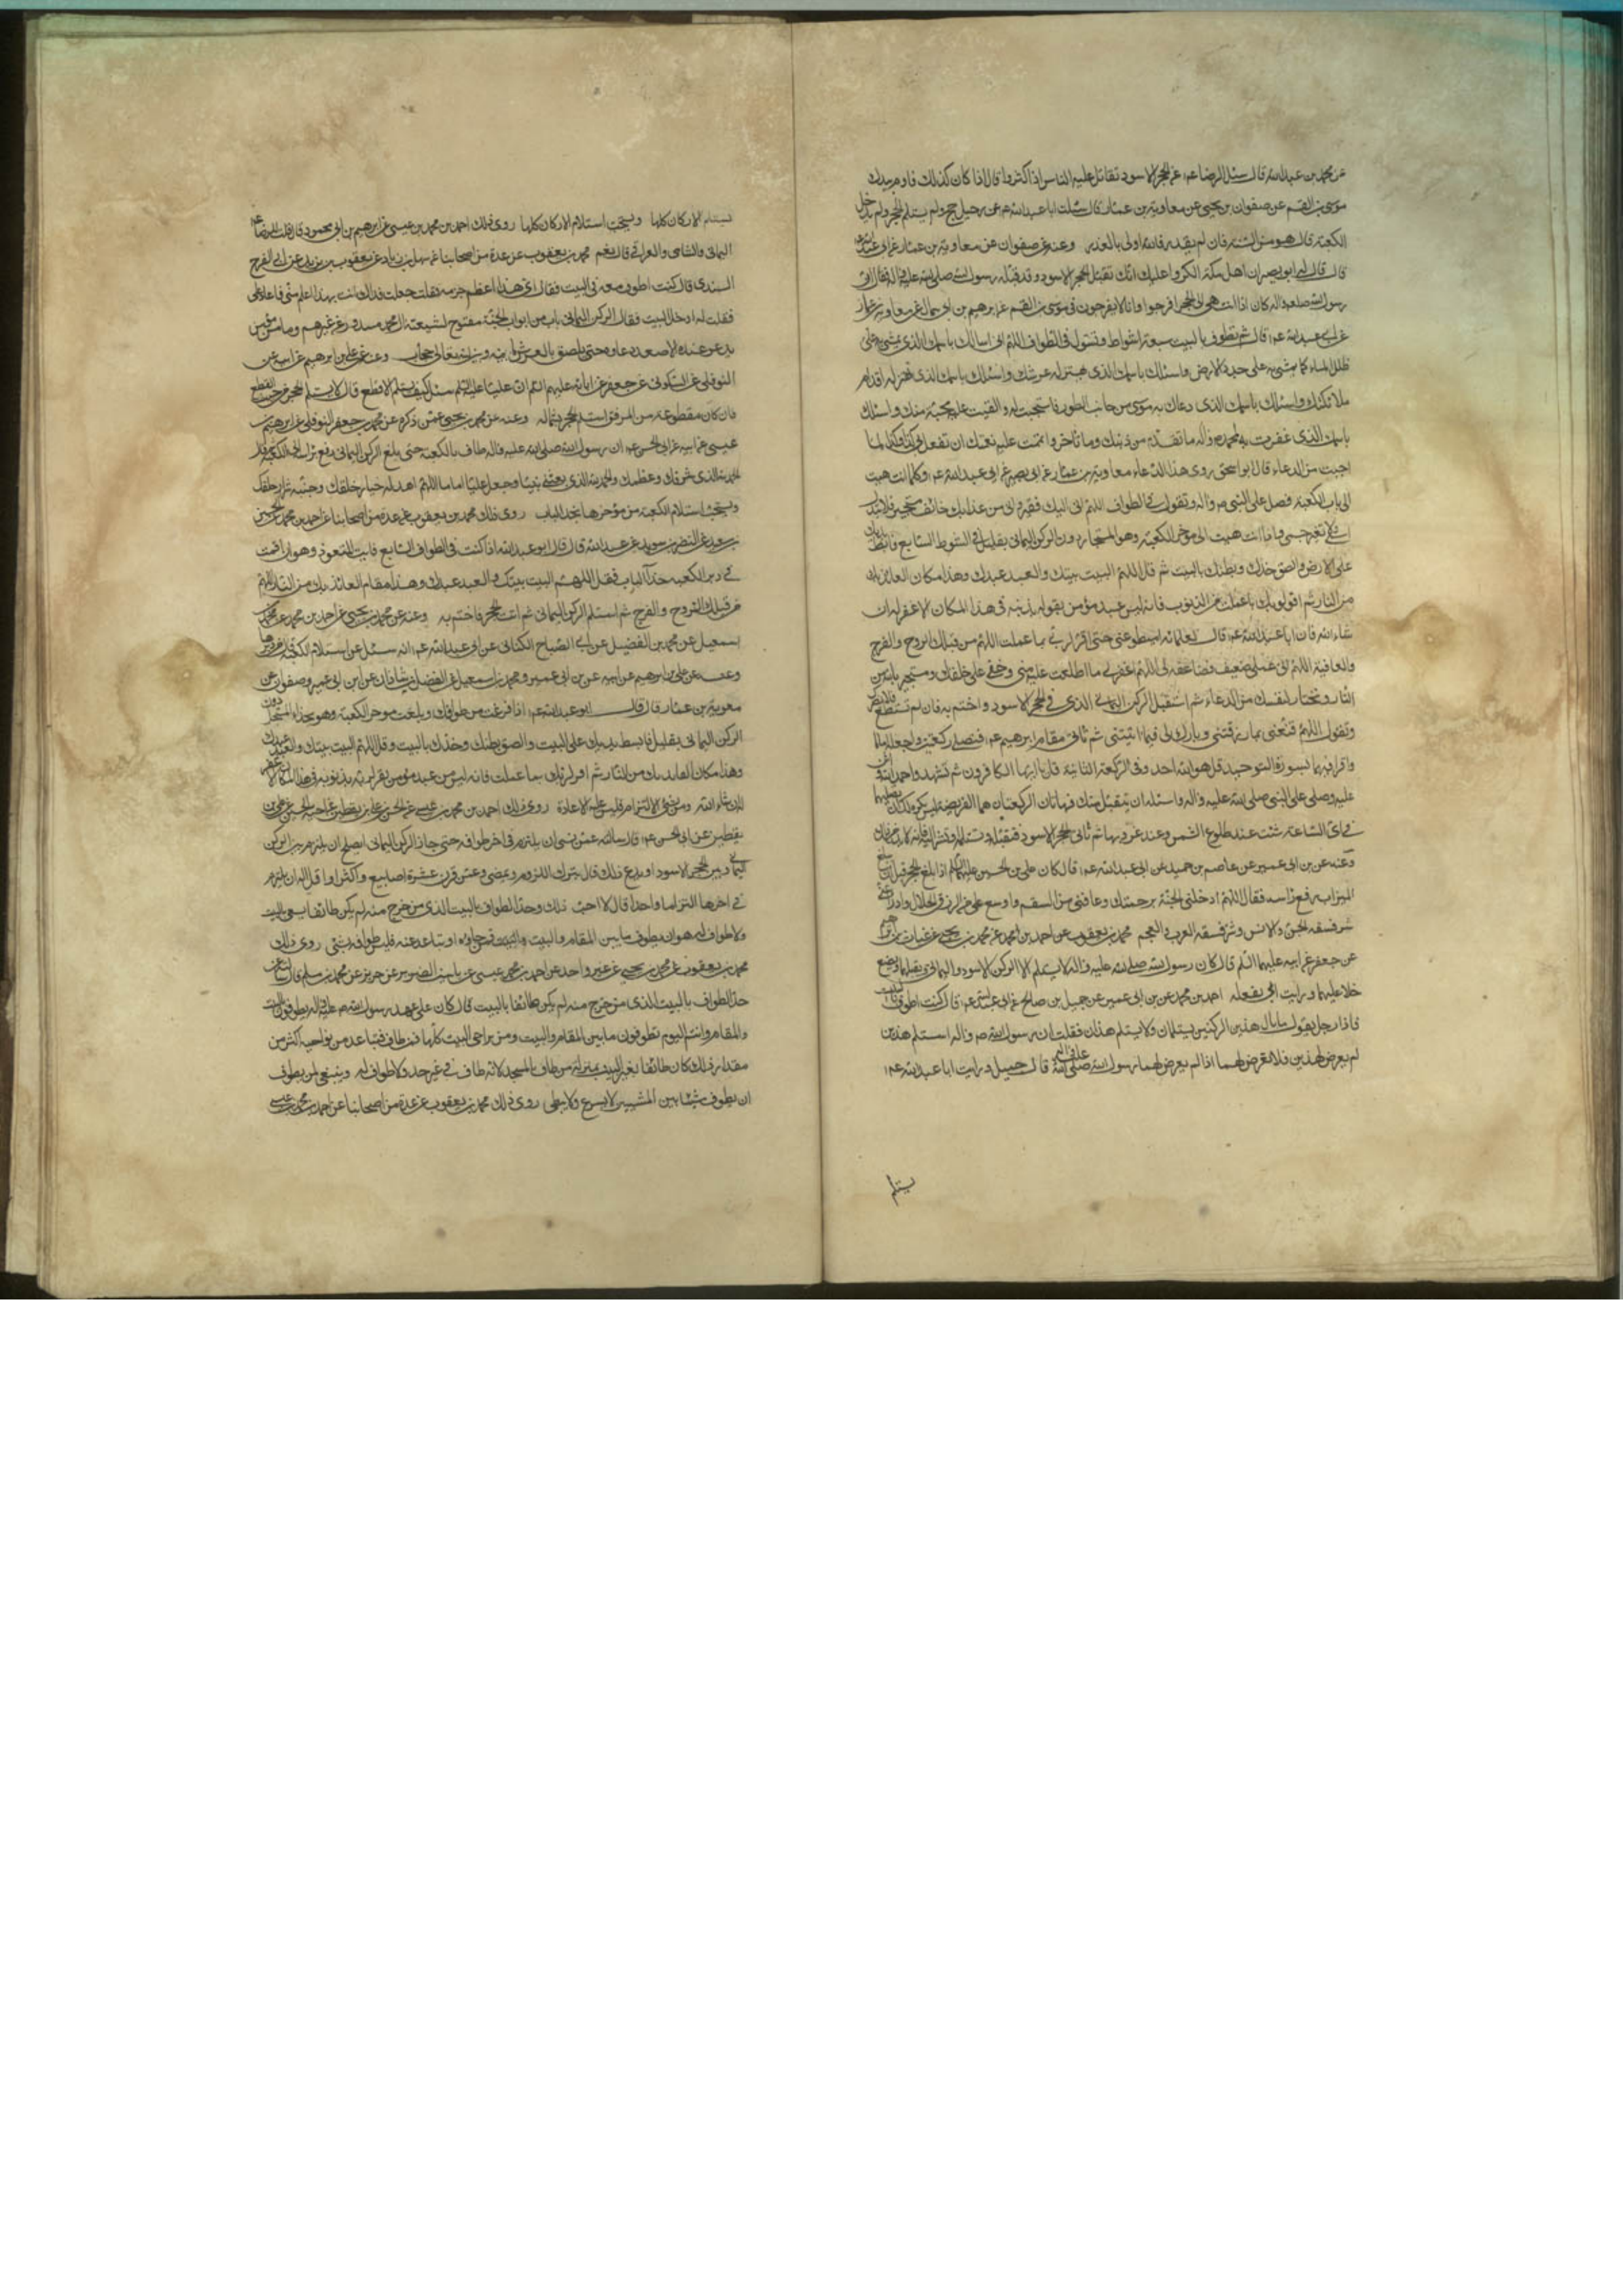 عن محمد بن عبيد الله قال سئل الرضا عم عن الحجر الاسود نقاتل عليه الناس اذا كثروا قال اذا كان كذلك فاوم بيدك
موسى بن القسم عن صفوان بن يحيى عن معاوية بن عمار قال سئلت ابا عبد الله عم عن رجل حج ولم يستلم الحجر ولم يدخل
الكعبة قال هو من السنة فان لم يقدر فالله اولى بالعذر وعنه عن صفوان عن معاوية بن عمار عن ابي عبد الله
قال قال له ابو بصير ان اهل مكة انكروا عليك انك لم تقبل الحجر الاسود وقد قبله رسول الله صلى الله عليه واله فقال ان
رسول الله واله كان اذا انتهى الى الحجر افرجوا له وانا لا يفرجون لي موسى بن القسم عن ابرهيم بن ابي سمال عن معاوية بن عمار
عن ابي عبد الله عم قال ثم تطوف بالبيت سبعة اشواط وتقول في الطواف اللهم اني اسالك باسمك الذي يمشى به على
ظلل الماء كما يمشى به على جدد الارض واسئلك باسمك الذي يهتز له عرشك واسئلك باسمك الذي تهتز له اقدام
ملائكتك واسئلك باسمك الذي دعاك به موسى من جانب الطور فاستجبت له والقيت عليه محبة منك واسئلك
باسمك الذي غفرت به لمحمد واله ما تقدم من ذنبك وما تاخر واتممت عليه نعمتك ان تفعل بي كذا وكذا لما
احببت من الدعاء قال ابو اسحق روى هذا الدعاء معاوية بن عمار عن ابي بصير عن ابي عبد الله عم وكلما انتهيت
الى باب الكعبة فصل على النبي واله وتقول في الطواف اللهم اني اليك فقير واني من عذابك خائف مستجير فلا تبدل
اسمي ولا تغير جسمي فاذا انتهيت الى مؤخر الكعبة وهو المستجار دون الركن اليماني بقليل في الشوط السابع فابسط يديك
على الارض والصق خدك وبطنك بالبيت ثم قل اللهم البيت بيتك والعبد عبدك وهذا مكان العائذ بك
من النار ثم اقر لربك بما عملت من الذنوب فانه ليس عبد مؤمن يقر لربه بذنوبه في هذا المكان الا غفر له ان
شاء الله فان ابا عبد الله عم قال لغلمانه اميطوا عني حتى اقر لربي بما عملت اللهم من قبلك الروح والفرج
والعافية اللهم ان عملي ضعيف فضاعفه لي اللهم اغفر لي ما اطلعت عليه مني وخفي على خلقك وتستجير بالله من
النار وتختار لنفسك من الدعاء ثم استقبل الركن اليماني والذي فيه الحجر الاسود واختم به فان لم تستطع فلا يضرك
وتقول اللهم قنعني بما رزقتني وبارك لي فيما اتيتني ثم تاتي مقام ابرهيم عم فتصلي ركعتين واجعله اماما
واقرا فيهما بسورة التوحيد قل هو الله احد وفي الركعة الثانية قل يا ايها الكافرون ثم تشهد واحمد الله واثن
عليه وصلى على النبي صلى الله عليه واله واسئله ان يتقبل منك فهاتان الركعتان هما الفريضة ليس يكره لك ان تصليهما
في اي الساعة شئت عند طلوع الشمس وعند غروبها ثم تاتي الحجر الاسود فتقبله وتستلمه وتشير اليه فانه لا بد من ذلك
وعنه عن بن ابي عمير عن عاصم بن حميد عن ابي عبد الله عم قال كان علي بن الحسين عليهما السلم اذا بلغ الحجر قبل ان يبلغ
الميزاب رفع راسه فقال اللهم ادخلني الجنة برحمتك وعافني من السقم واوسع علي من الرزق الحلال وادرا عني
شر فسقة الجن والانس وشر فسقة العرب والعجم محمد بن يعقوب عن احمد بن محمد عن محمد بن يحيى عن غياث بن ابرهيم
عن جعفر عن ابيه عليهما السلم قال كان رسول الله صلى الله عليه واله لا يستلم الا الركن الاسود واليماني ويقبلهما ويضع
خده عليهما ورايت ابي يفعله احمد بن محمد عن بن ابي عمير عن جميل بن صالح عن ابي عبد الله عم قال كنت اطوف بالبيت
فاذا رجل يقول ما بال هذين الركنين يستلمان ولا يستلم هذان فقلت ان رسول الله ص واله استلم هذين
لم يعرض لهذين فلا تعرض لهما اذا لم يعرض لهما رسول الله صلى الله عليه واله قال جميل ورايت ابا عبد الله عم
يستلم
يستلم الاركان كلها ويستحب استلام الاركان كلها روى ذلك احمد بن محمد بن عيسى عن ابرهيم بن ابي محمود قال قلت للرضا عم
اليماني والشامي والغربي قال نعم محمد بن يعقوب عن عدة من اصحابنا عن سهل بن زياد عن يعقوب بن يزيد عن ابي الفرج
السندي قال كنت اطوف معه في البيت فقال اي هذا اعظم حرمة فقلت جعلت فداك انت بهذا اعلم مني فاعاد علي
فقلت له داخل البيت فقال الركن اليماني باب من ابواب الجنة مفتوح لشيعة آل محمد مسدود عن غيرهم وما من مؤمن
يدعو عنده الا صعد دعاوه حتى يلصق بالعرش ما بينه وبين الله تعالى حجاب وعنه عن علي بن ابرهيم عن ابيه عن
النوفلي عن السكوني عن جعفر عن ابائه عليهم السلم ان عليا عليه السلم سئل كيف يستلم الاقطع قال يستلم الحجر من حيث القطع
فان كان مقطوعة من المرفق استلم الحجر بشماله وعنه عن محمد بن يحيى عمن ذكره عن محمد بن جعفر النوفلي عن ابرهيم بن
عيسى عن ابيه عن ابي الحسن عم ان رسول الله صلى الله عليه واله طاف بالكعبة حتى بلغ الركن اليماني رفع راسه الى الكعبة فقال
الحمد لله الذي شرفك وعظمك والحمد لله الذي بعثني نبيا وجعل عليا اماما اللهم اهد له خيار خلقك وجنبه شرار خلقك
ويستحب استلام الكعبة من مؤخرها تجد الباب روى ذلك محمد بن يعقوب عن عدة من اصحابنا عن احمد بن محمد عن الحسين
بن سعيد عن النضر بن سويد عن عبد الله قال قال ابو عبد الله اذا كنت في الطواف السابع فايت المتعوذ وهو اذا قمت
في دبر الكعبه حذاء الباب فقل اللهم البيت بيتك والعبد عبدك وهذا مقام العائذ بك من النار اللهم
من قبلك الروح والفرج ثم استلم الركن اليماني ثم ائت الحجر فاختم به وعنه عن محمد بن يحيى عن احمد بن محمد عن محمد بن
اسمعيل عن محمد بن الفضيل عن ابي الصباح الكناني عن ابي عبد الله عم انه سئل عن استلام الكعبة قال من دبرها
وعنه عن علي بن ابرهيم عن ابيه عن بن ابي عمير ومحمد بن اسمعيل عن الفضل بن شاذان عن ابن ابي عمير وصفوان عن
معوية بن عمار قال قال ابو عبد الله عم اذا فرغت من طوافك وبلغت موخر الكعبة وهو بحذاء المستجار دون
الركن اليماني بقليل فابسط يديك على البيت والصق بطنك وخدك بالبيت وقل اللهم البيت بيتك والعبد عبدك
وهذا مكان العايذ بك من النار ثم اقر لربك بما عملت فانه ليس من عبد مؤمن يقر لربه بذنوبه في هذا المكان الا غفر
له ان شاء الله ومن نسي الالتزام فليس عليه الاعادة روى ذلك احمد بن محمد بن عيسى عن الحسن بن علي بن يقطين عن اخيه الحسين عن علي بن
يقطين عن ابي الحسن عم قال سالته عمن نسي ان يلتزم في اخر طوافه حتى جاز الركن اليماني ايصلح ان يلتزم بين الركن
اليماني وبين الحجر الاسود او يدع ذلك قال يترك اللزوم ويمضى وعمن قرن عشرة اسابيع واكثر او اقل له ان يلتزم
في اخرها التزاما واحدا قال لا احب ذلك وحد الطواف بالبيت الذي من خرج منه لم يكن طائفا يسعى بالبيت
ولا طواف له هو ان يطوف ما بين المقام والبيت والبيت فمن جاوزه او تباعد عنه فليس طوافه بشئ روى ذلك
محمد بن يعقوب عن محمد بن يحيى عن غير واحد عن احمد بن محمد بن عيسى عن ياسين الضرير عن حريز عن محمد بن مسلم قال سالته عن
حد الطواف بالبيت الذي من خرج منه لم يكن طائفا بالبيت قال كان على عهد رسول الله ص عليه واله يطوفون بالبيت
والمقام وانتم اليوم تطوفون ما بين المقام والبيت ومن نواحي البيت كلها فمن طاف فتباعد من نواحيه اكثر من
مقدار ذلك كان طائفا بغير البيت بمنزلة من طاف بالمسجد لانه طاف في غير حد ولا طواف له وينبغي لمن يطوف
ان يطوف مشيا بين المشيين لا يسرع ولا يبطي روى ذلك محمد بن يعقوب عن عدة من اصحابنا عن احمد بن محمد بن عيسى